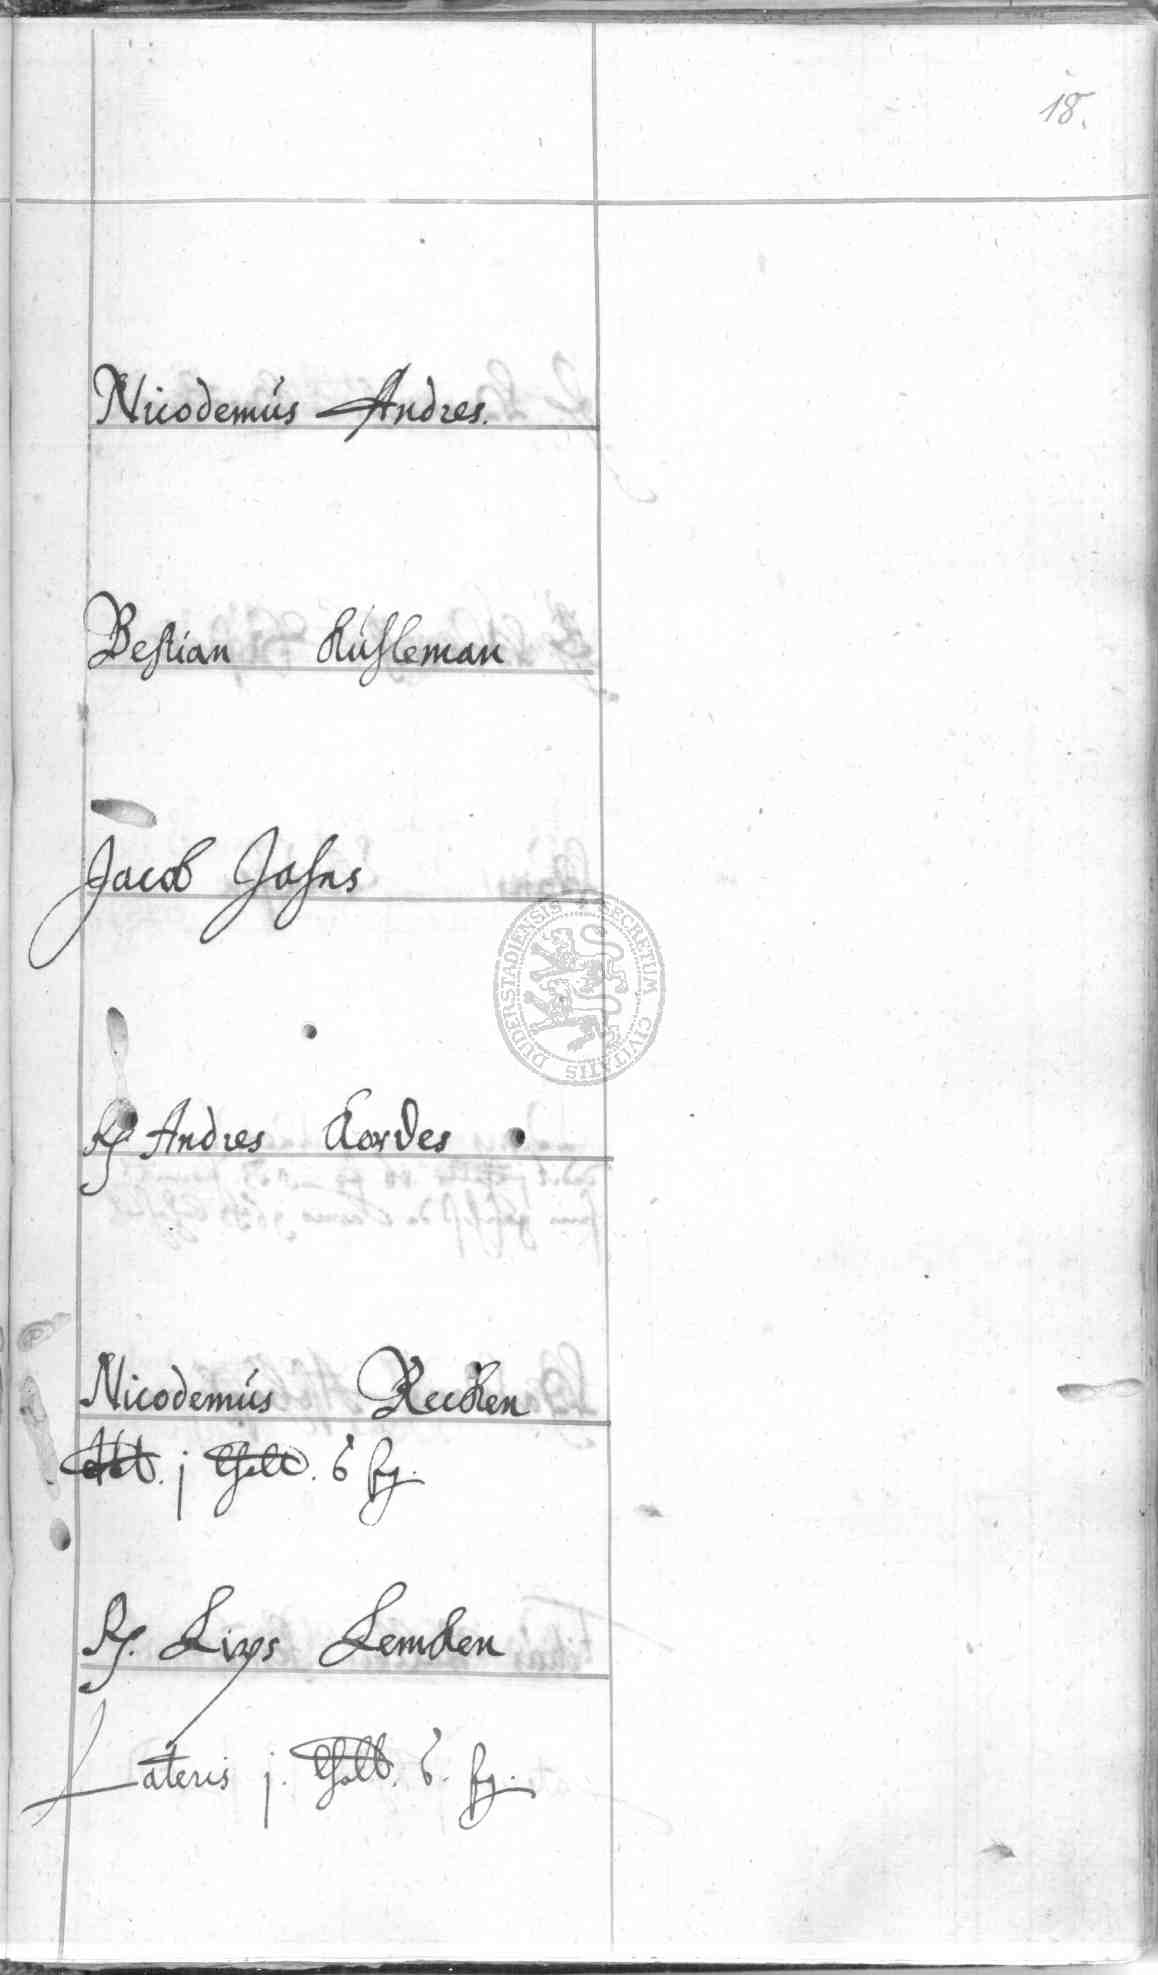 18.
Nicodemús Andres.
Bestian Kúhleman
Jacob Jahns
Andres Cordes
Nicodemús Recken
j thall. 6 ßg.
Lips Lemken
Lateris j. thall. 6. ßg.
DUDERSTADIENSIS SECRETUM CIVITATIS